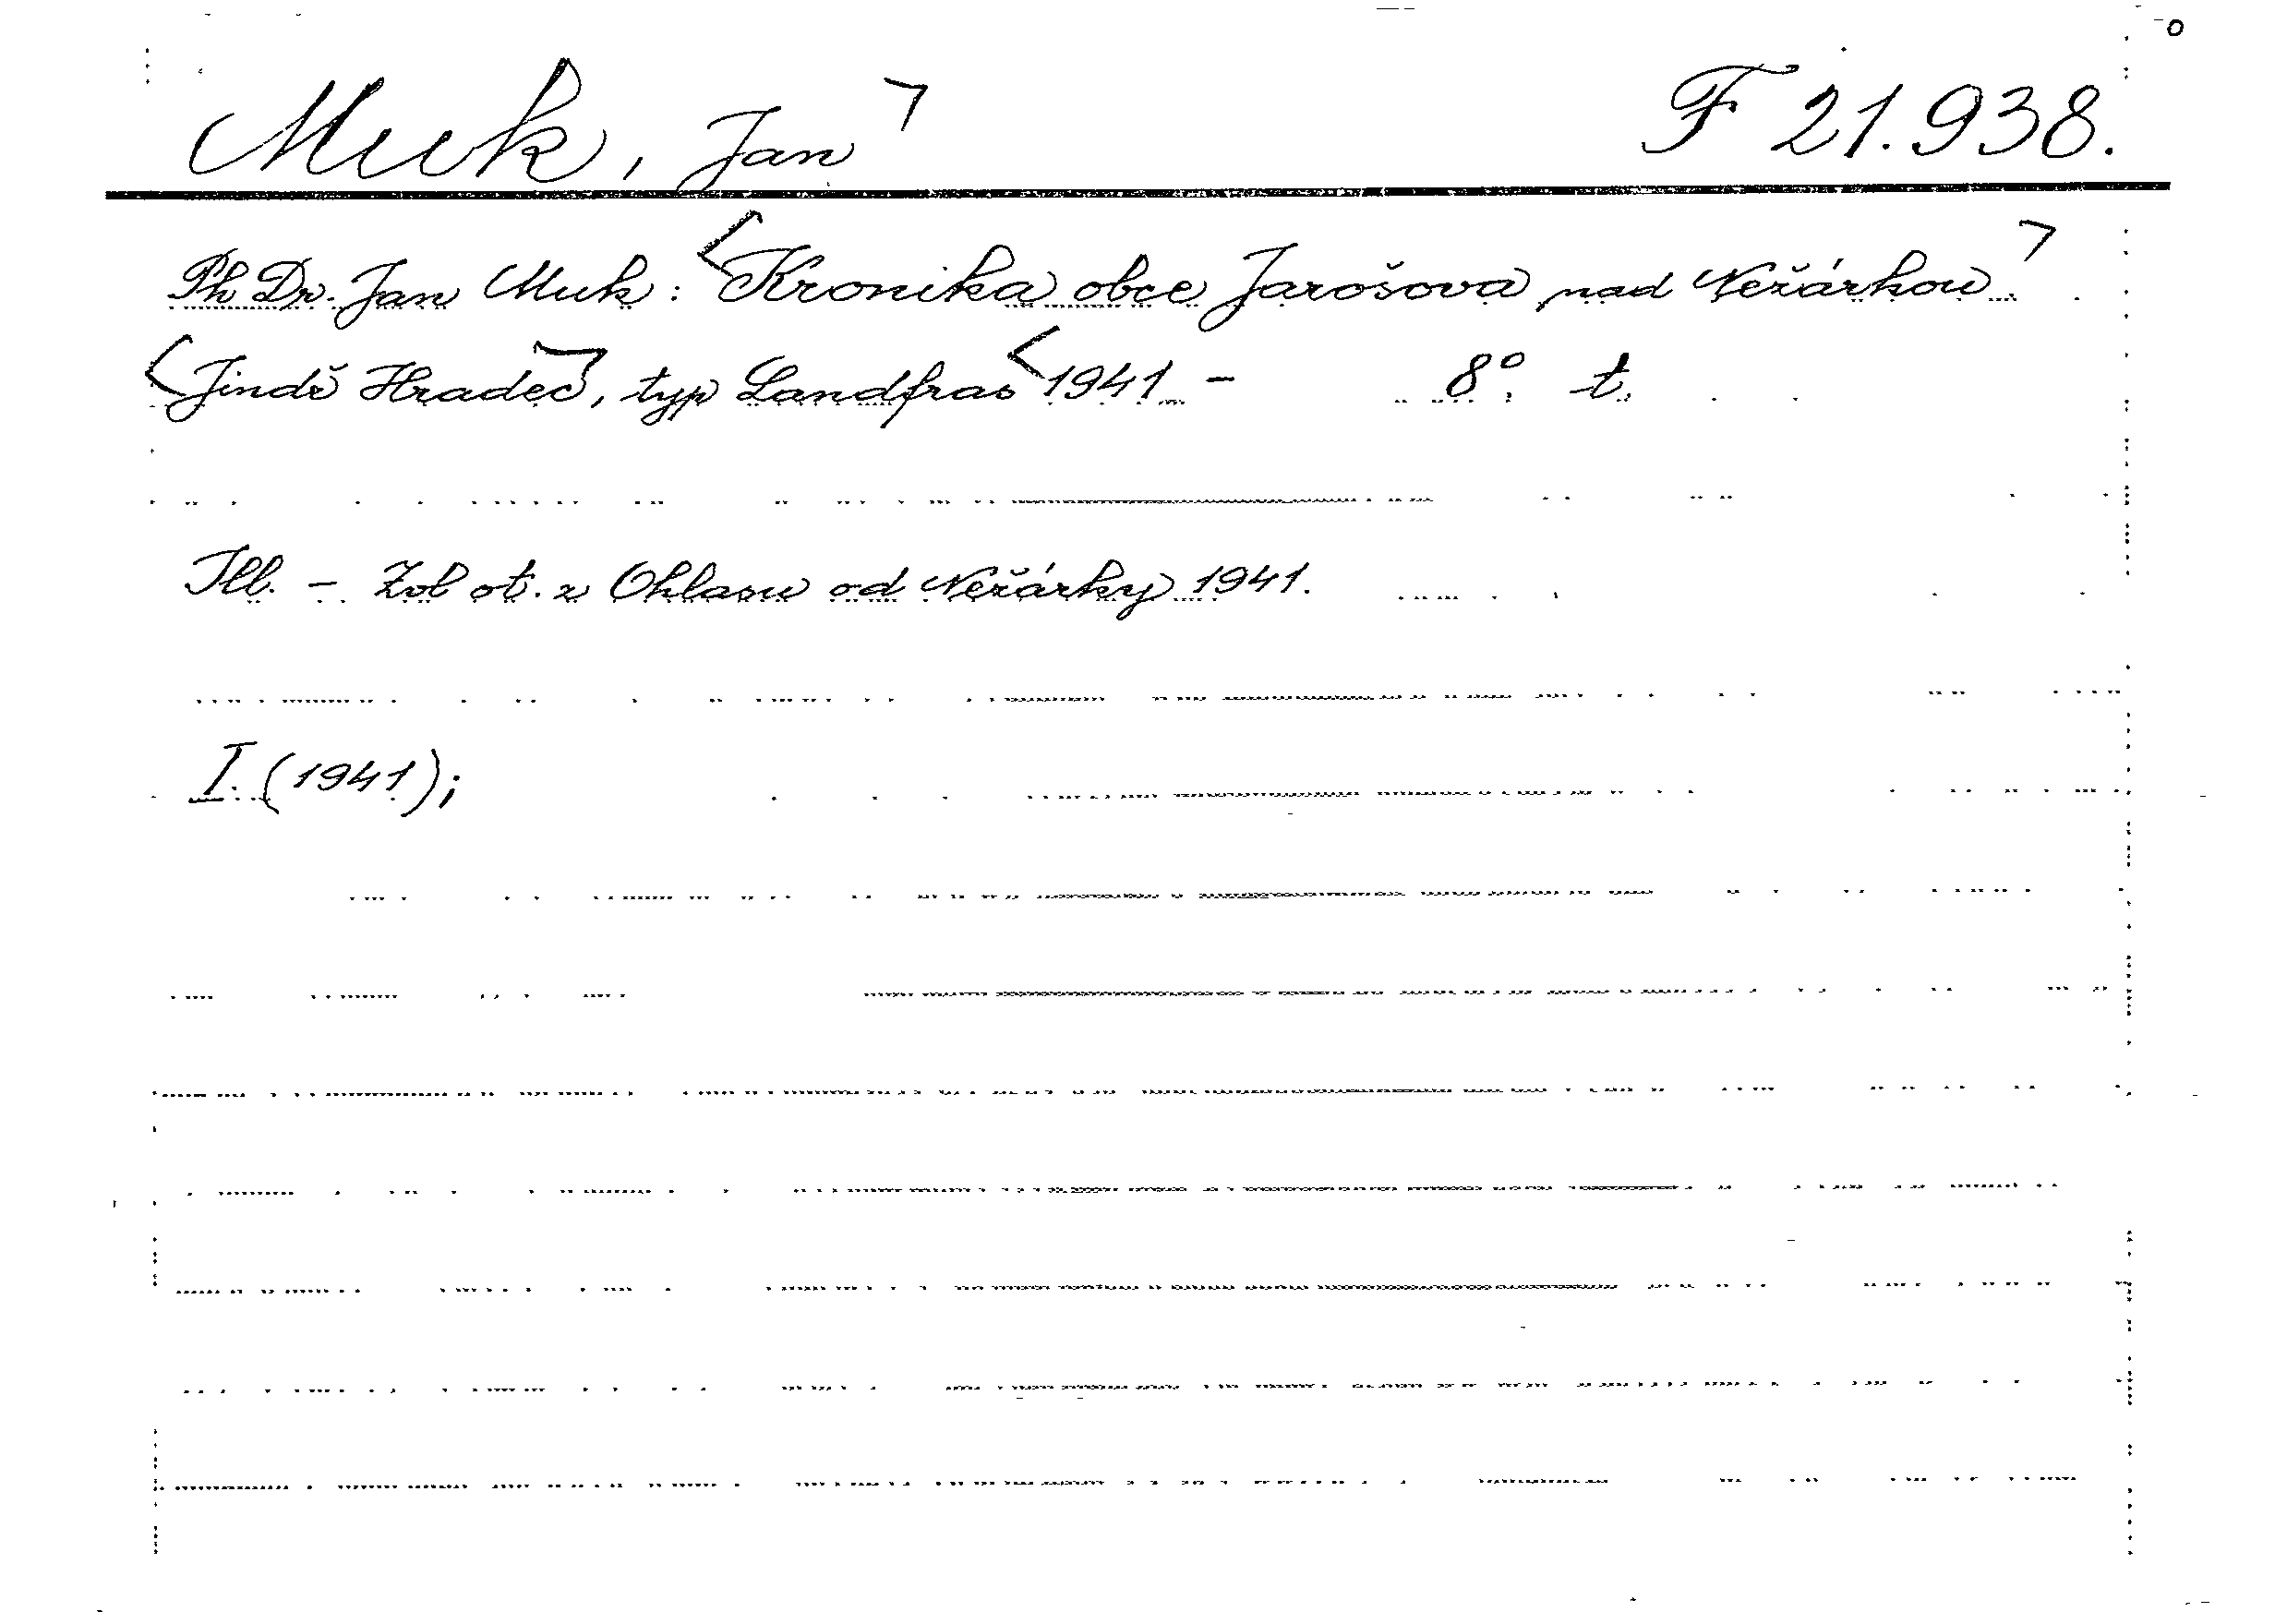 Muk, Jan F 21.938.
Ph Dr. Jan Muk: Kronika obce Jarošova nad Nežárkou
Jindř Hradec, typ Landfras 1941 - 8° t.
Ill. - Zvl ot. z Ohlasu od Nežárky 1941.
I. (1941);